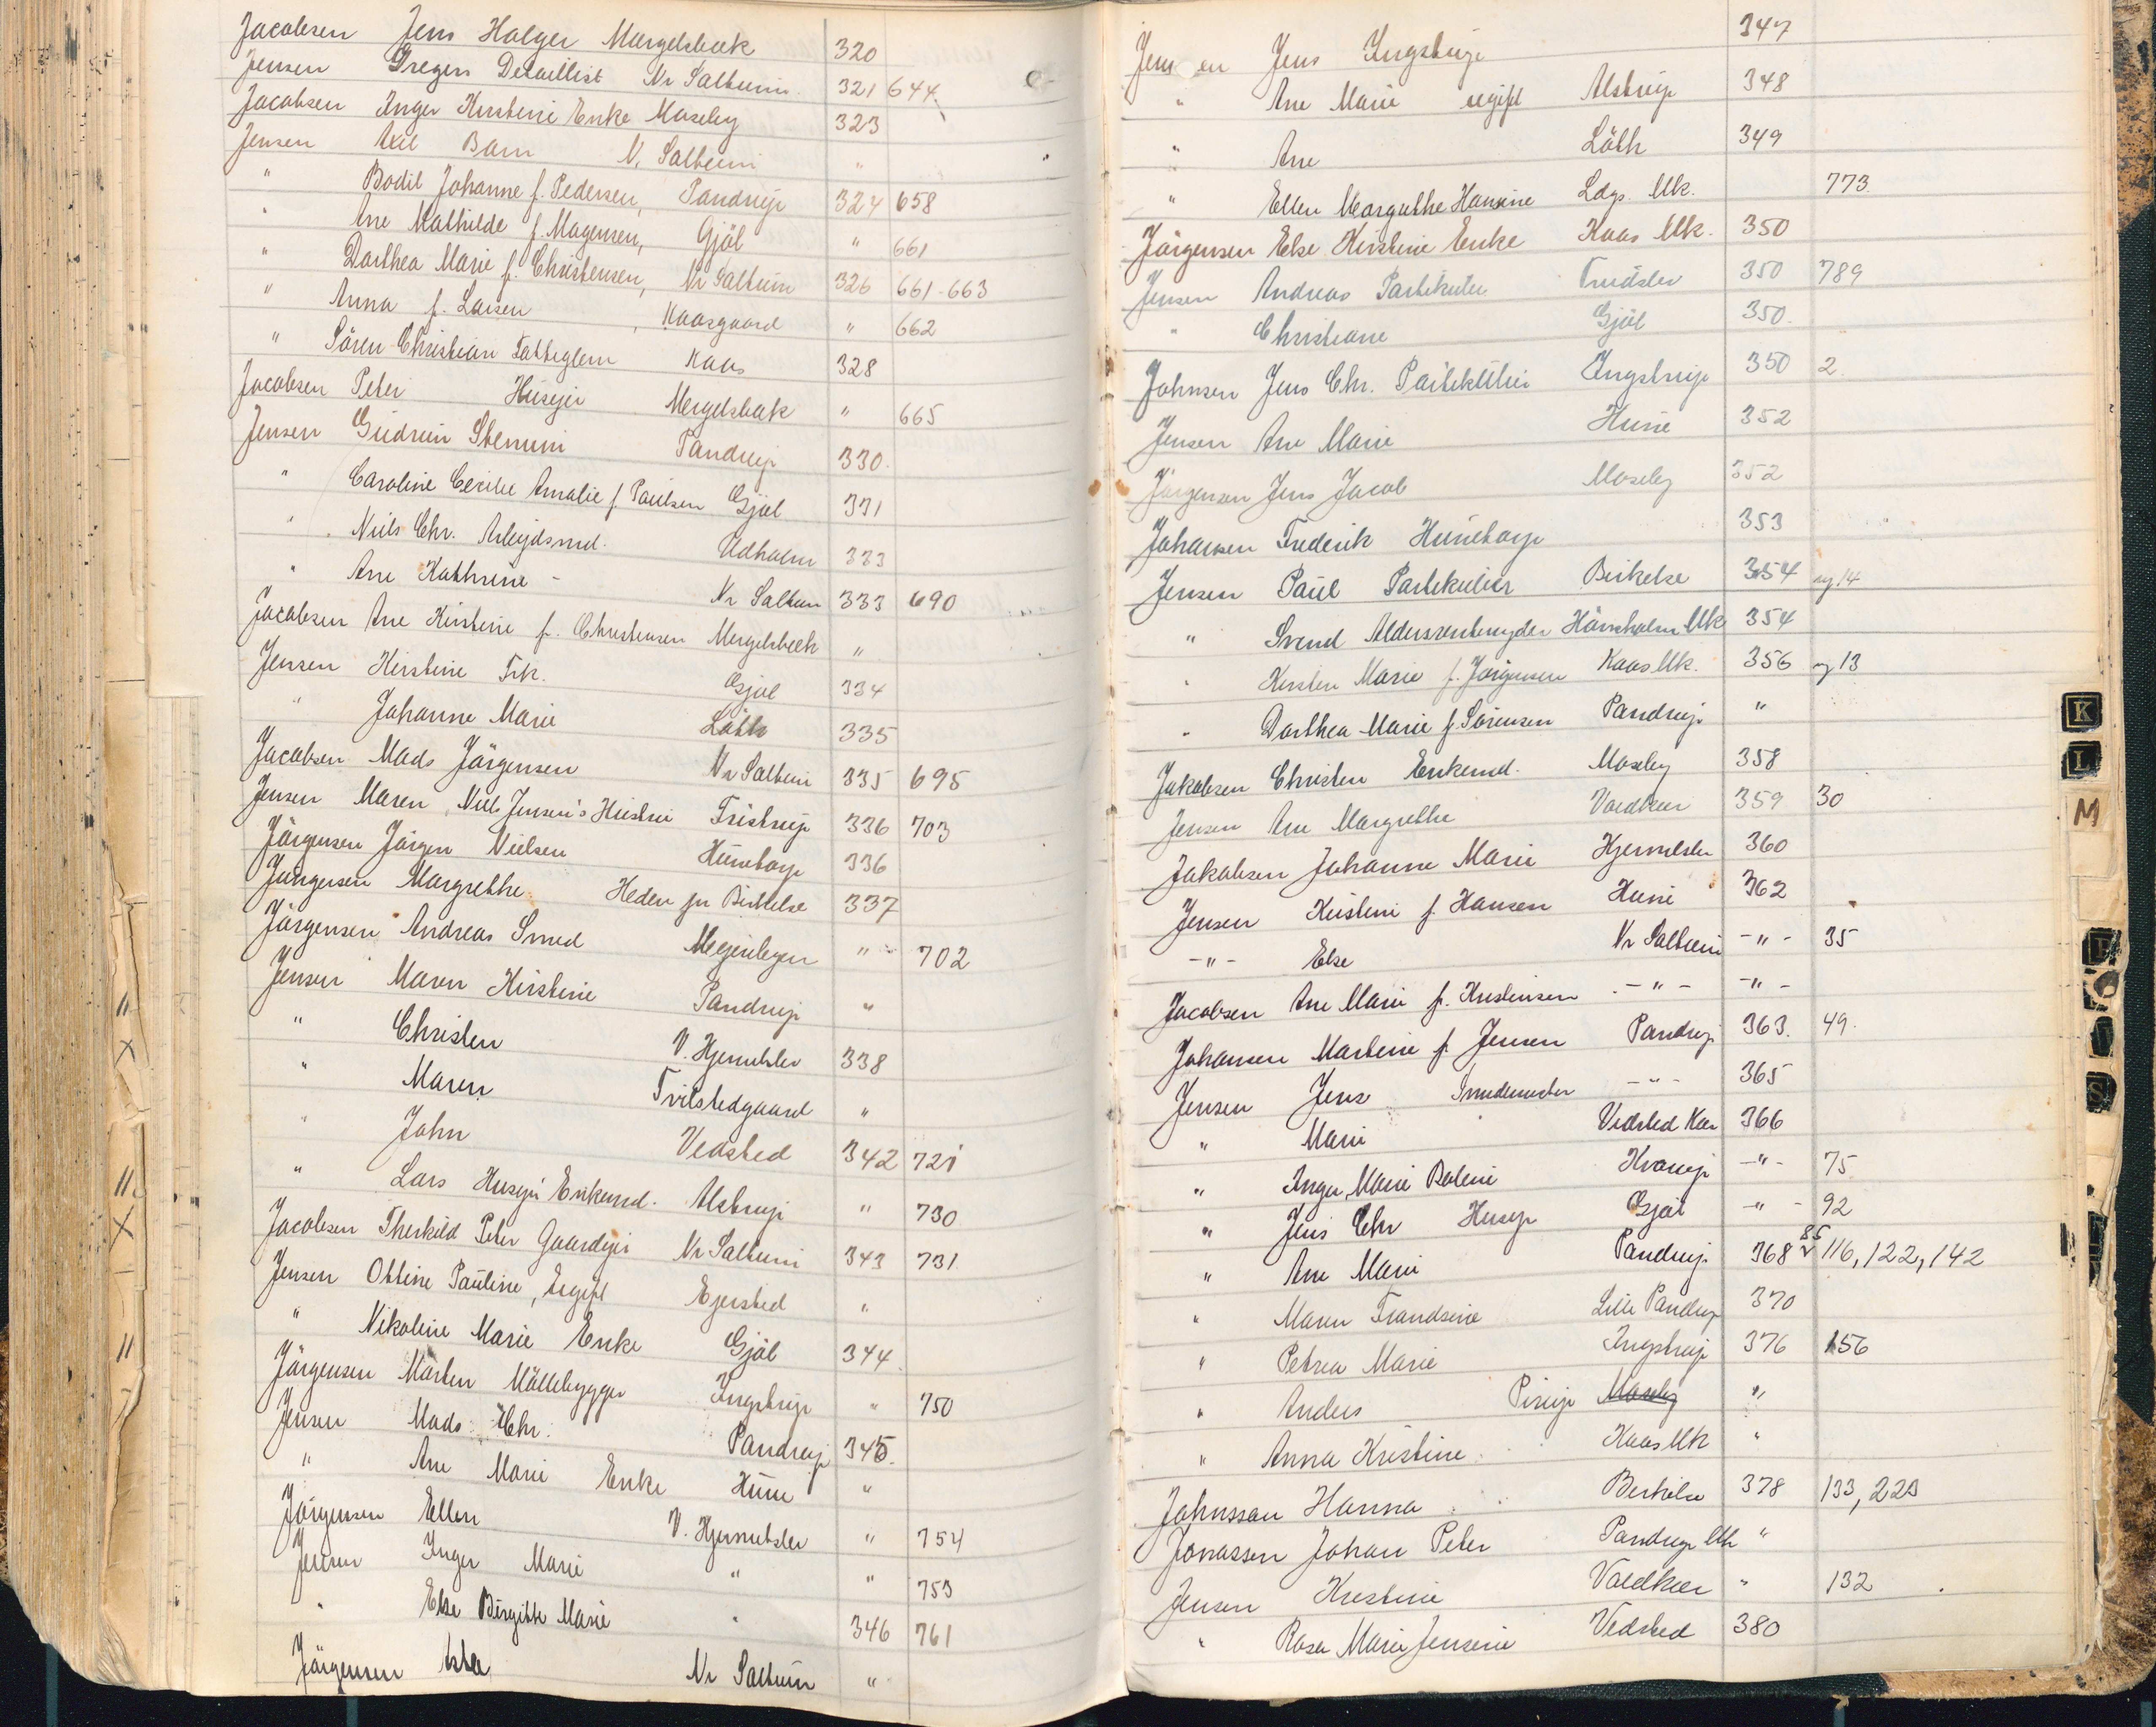 Jacobsen Jens Holger Mergelsbæk 320
Jensen Gregers Detaillist Nr Saltum 321 644
Jacobsen Inger Kirstine Enke Moseby 323
Jensen Axel Barn N. Saltum "
" Bodil Johanne f. Pedersen, Pandrup 324 658
" Ane Mathilde f. Mogensen, Gjöl " 661
" Dorthea Marie f. Christensen, Nr Saltum 326 661-663
" Anna f. Larsen, Kaasgaard " 662
" Sören Christian Fattiglem Kaas 328
Jacobsen Peter Husejer Mergelsbæk " 665
Jensen Gudrun Stenum Pandrup 330
" Caroline Cecilie Amalie f. Paulsen Gjøl 331
" Niels Chr. Arbejdsmd. Udholm 333
" Ane Kathrine - Nr Saltum 333 690
Jacobsen Ane Kirstine f. Christensen Mergelsbæk "
Jensen Kirstine Frk. Gjøl 334
" Johanne Marie Löth 335
Jacobsen Mads Jörgensen Nr Saltum 335 695
Jensen Maren, Niels Jensen's Hustru Tristrup 336 703
Jörgensen Jörgen Nielsen Hunetorp 336
Jörgensen Margrethe Heden pr Birkelse 337
Jörgensen Andreas Smed Mejeribyen " 702
Jensen Maren Kirstine Pandrup "
" Christen V. Hjermitslev 338
" Maren Tvilstedgaard "
" John Vedsted 342 721
" Lars Husejer Enkemd. Alstrup " 730
Jacobsen Therkild Peter Gaardejer Nr Saltum 343 731
Jensen Ottine Pauline, Ugift Ejersted "
" Nikoline Marie Enke Gjöl 344
Jörgensen Morten Möllebygger Ingstrup " 750
Jensen Mads Chr. Pandrup 345.
" Ane Marie Enke Hune "
Jörgensen Ellen V. Hjermitslev " 754
Jensen Inger Marie " " 753
" Else Birgitte Marie " 346 761
Jörgensen Asta Nr Saltum "
Jensen Jens Ingstrup 347
" Ane Marie ugift Alstrup 348
" Ane Löth 349
" Ellen Margrethe Hansine Ldgs. Mk. 773
Jörgensen Else Kirstine Enke Kaas Mk. 350
Jensen Andreas Partikulier Trudslev 350 789
" Christiane Gjöl 350
Johnsen Jens Chr. Partikulier Ingstrup 350 2
Jensen Ane Marie Hune 352
Jörgensen Jens Jacob Moseby 352
Johansen Frederik Hunetorp 353
Jensen Paul Partikulier Birkelse 354 og 14
" Svend Aldersrentenyder Hörsholm Mk 354
" Kirsten Marie f. Jörgensen Kaas Mk. 356 og 13
" Dorthea Marie f. Sörensen Pandrup "
Jakobsen Christen Enkemd. Moseby 358
Jensen Ane Margrethe Voedkær 359 30
Jakobsen Johanne Marie Hjermitslev 360
Jensen Kirstine f. Hansen Hune 362
-"- Else Nr Saltum -"- 35
Jacobsen Ane Marie f. Kristensen -"- -"-
Johansen Martine f. Jensen Pandrup 363. 49
Jensen Jens Smedemester -"- 365
" Marie Vedsted Kær 366
" Inger Marie Boline Kvorup -"- 75
" Jens Chr Husejer Gjöl -"- 92
" Ane Marie Pandrup 368 85 116, 122, 142
" Maren Frandsine Lille Pandrup 370
" Petrea Marie Ingstrup 376 156
" Anders Pirup Moseby "
" Anna Kristine Kaas Mk "
Johnsson Hanna Birkelse 378 133, 223
Jonassen Johan Peter Pandrup Mk "
Jensen Kirstine Voedkær " 132
" Rosa Marie Jensine Vedsted 380
K
L
M
S